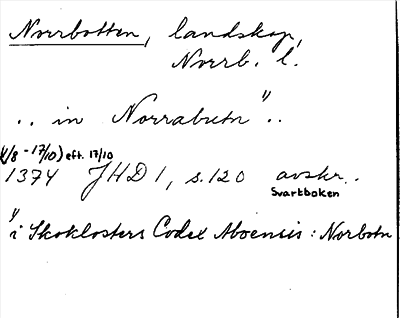 Norrbotten, landskap,
Norrb. l.
.. in Norrabutn" ..
(1/8 - 17/10) eft. 17/10
1374 JHD 1, s. 120 avskr.
Svartboken
" i Skoklosters Codex Aboensis : Norbotn